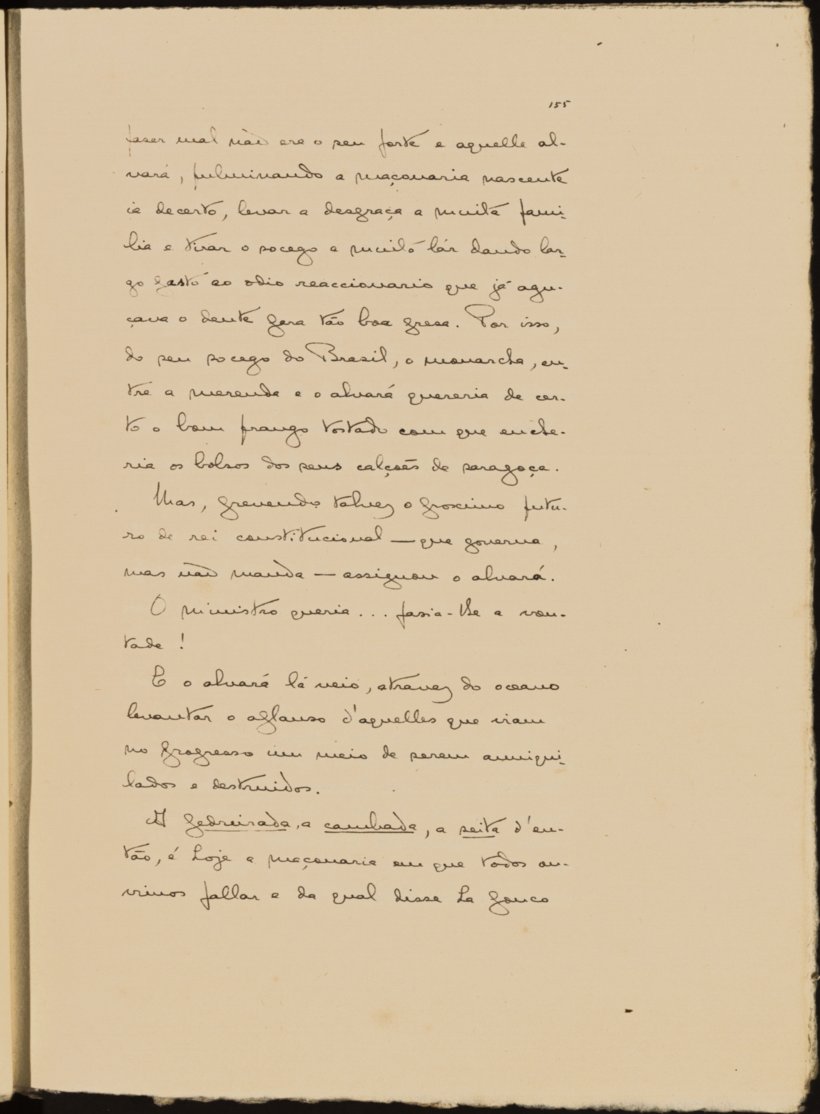 155
faser mal não era o seu forte e aquelle al-
vará, fulminando a maçonaria nascente
ia decerto, levar a desgraça a muita fami-
lia e tirar o socego a muito lár dando lar-
go gasto ao odio reaccionario que já agu-
çava o dente para tão boa presa. Por isso,
do seu socego do Brasil, o monarcha, en-
tre a merenda e o alvará quereria de cer-
to o bom frango tostado com que enche-
ria os bolsos dos seus calções de saragoça.
Mas, prevendo talvez o proximo futu-
ro de rei constitucional — que governa,
mas não manda — assignou o alvará.
O ministro queria... fasia-lhe a von-
tade!
E o alvará lá veio, atravez do oceano
levantar o aplauso d'aquelles que viam
no progresso um meio de serem anniqui-
lados e destruidos.
A pedreirada, a cambada, a seita d'en-
tão, é hoje a maçonaria em que todos ou-
vimos fallar e da qual disse ha pouco